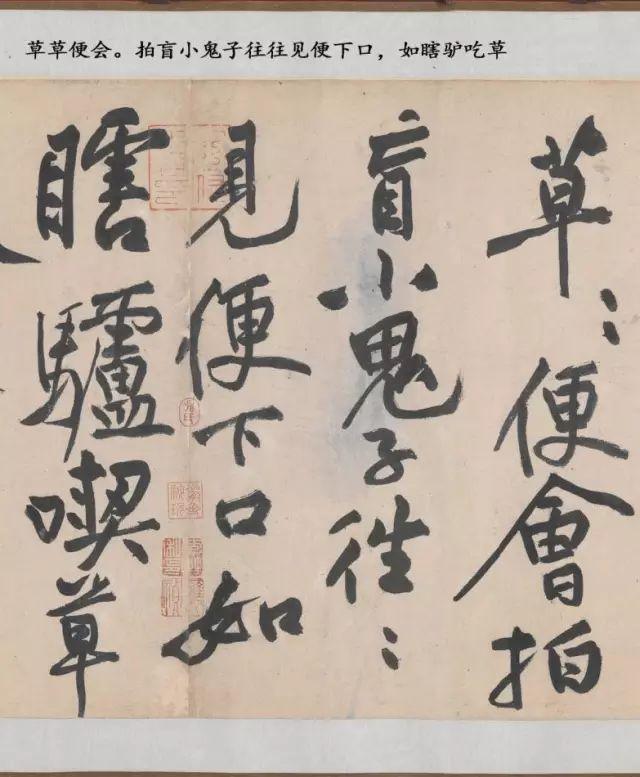 草草便会。拍盲小鬼子往往见便下口，如瞎驴吃草
草〻便會拍
盲小鬼子往〻
見便下口如
瞎驢喫草